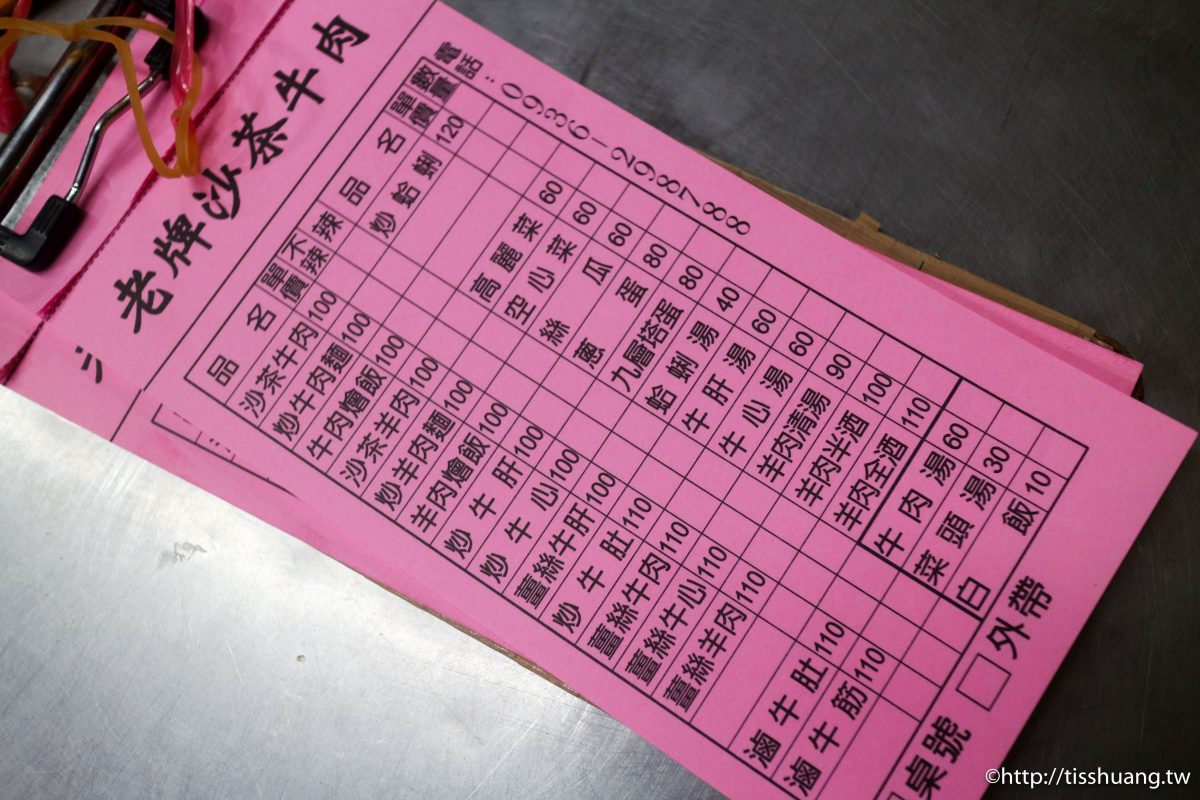 老牌沙茶牛肉
電話：0936－298788
品名 單價 不辣 辣
沙茶牛肉 100
炒牛肉麵 100
牛肉燴飯 100
沙茶羊肉 100
炒羊肉麵 100
羊肉燴飯 100
炒牛肝 100
炒牛心 100
薑絲牛肝 100
炒牛肚 110
薑絲牛肉 110
薑絲牛心 110
薑絲羊肉 110
滷牛肚 110
滷牛筋 110
品名 單價 數量
炒蛤蜊 120
高麗菜 60
空心菜 60
絲瓜 60
蔥蛋 80
九層塔蛋 80
蛤蜊湯 40
牛肝湯 60
牛心湯 60
羊肉清湯 90
羊肉半酒 100
羊肉全酒 110
牛肉湯 60
菜頭湯 30
白飯 10
外帶
桌號
©http://tisshuang.tw